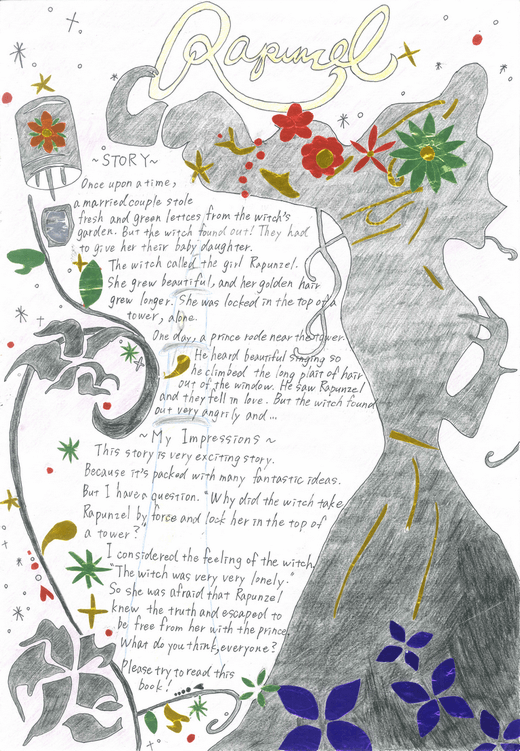 Rapunzel
~STORY~
Once upon a time,
a married couple stole
fresh and green lettces from the witch's
garden. But the witch found out! They had
to give her their baby daughter.
The witch called the girl Rapunzel.
She grew beautiful, and her golden hair
grew longer. She was locked in the top of a
tower, alone.
One day, a prince rode near the tower.
He heard beautiful singing so
he climbed the long plait of hair
out of the window. He saw Rapunzel
and they fell in love. But the witch found
out very angrily and...
~ My Impressions ~
This story is very exciting story.
Because it's packed with many fantastic ideas.
But I have a question. "Why did the witch take
Rapunzel by force and lock her in the top of
a tower?"
I considered the feeling of the witch.
"The witch was very very lonely."
So she was afraid that Rapunzel
knew the truth and escaped to
be free from her with the prince.
What do you think, everyone?
Please try to read this
book!